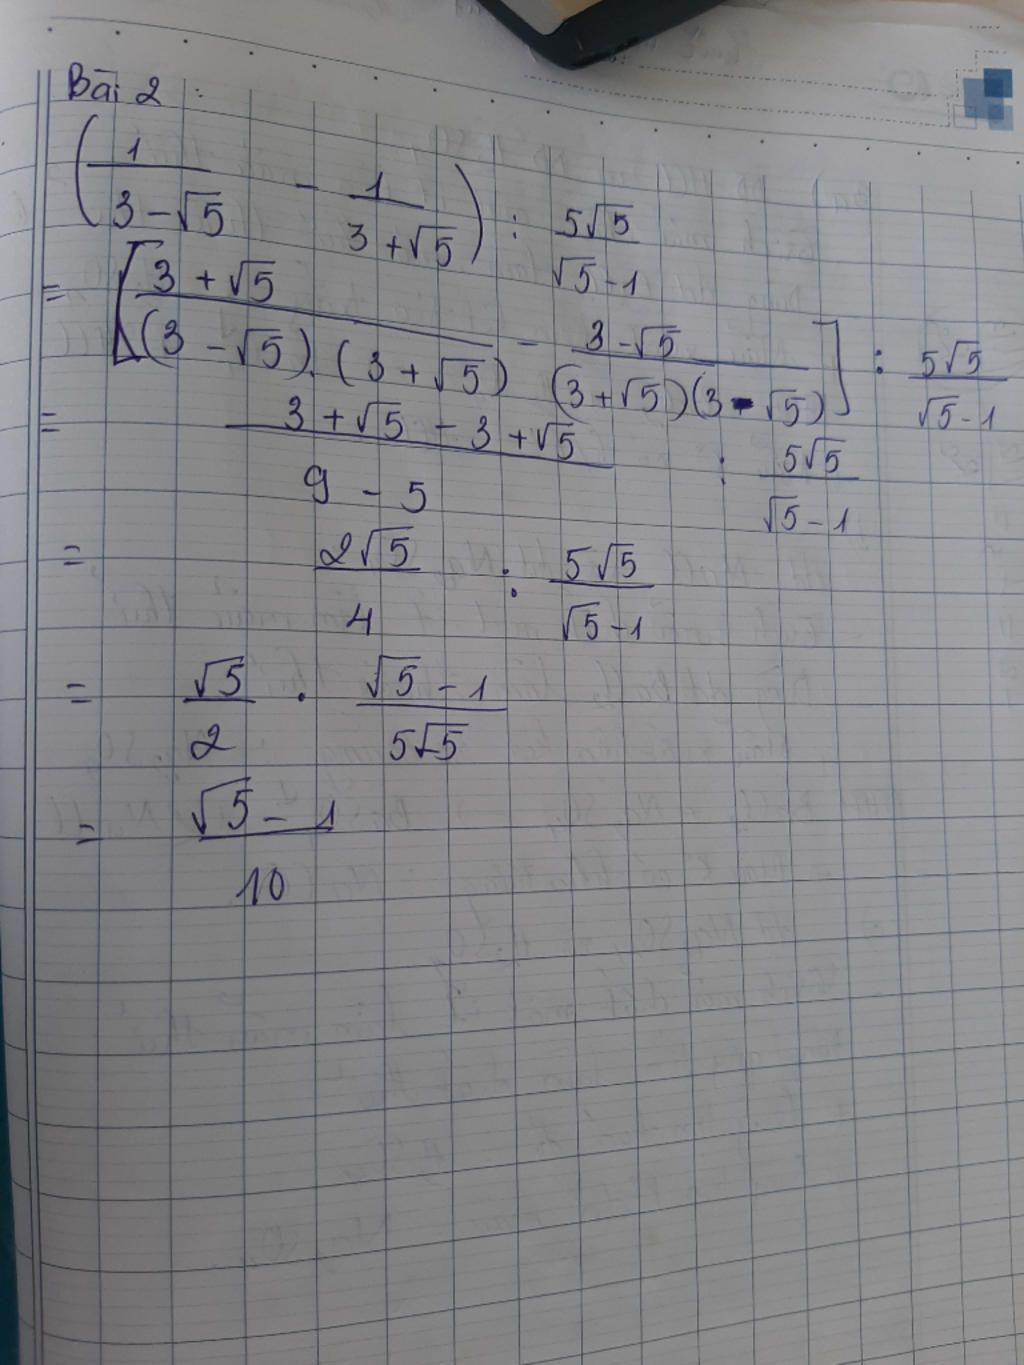 Bài 2 :
(1/(3-√5) - 1/(3+√5)) : 5√5/(√5-1)
= [(3+√5)/((3-√5).(3+√5)) - (3-√5)/((3+√5)(3-√5))] : 5√5/(√5-1)
= (3+√5-3+√5)/(9-5) : 5√5/(√5-1)
= 2√5/4 : 5√5/(√5-1)
= √5/2 . (√5-1)/(5√5)
= (√5-1)/10